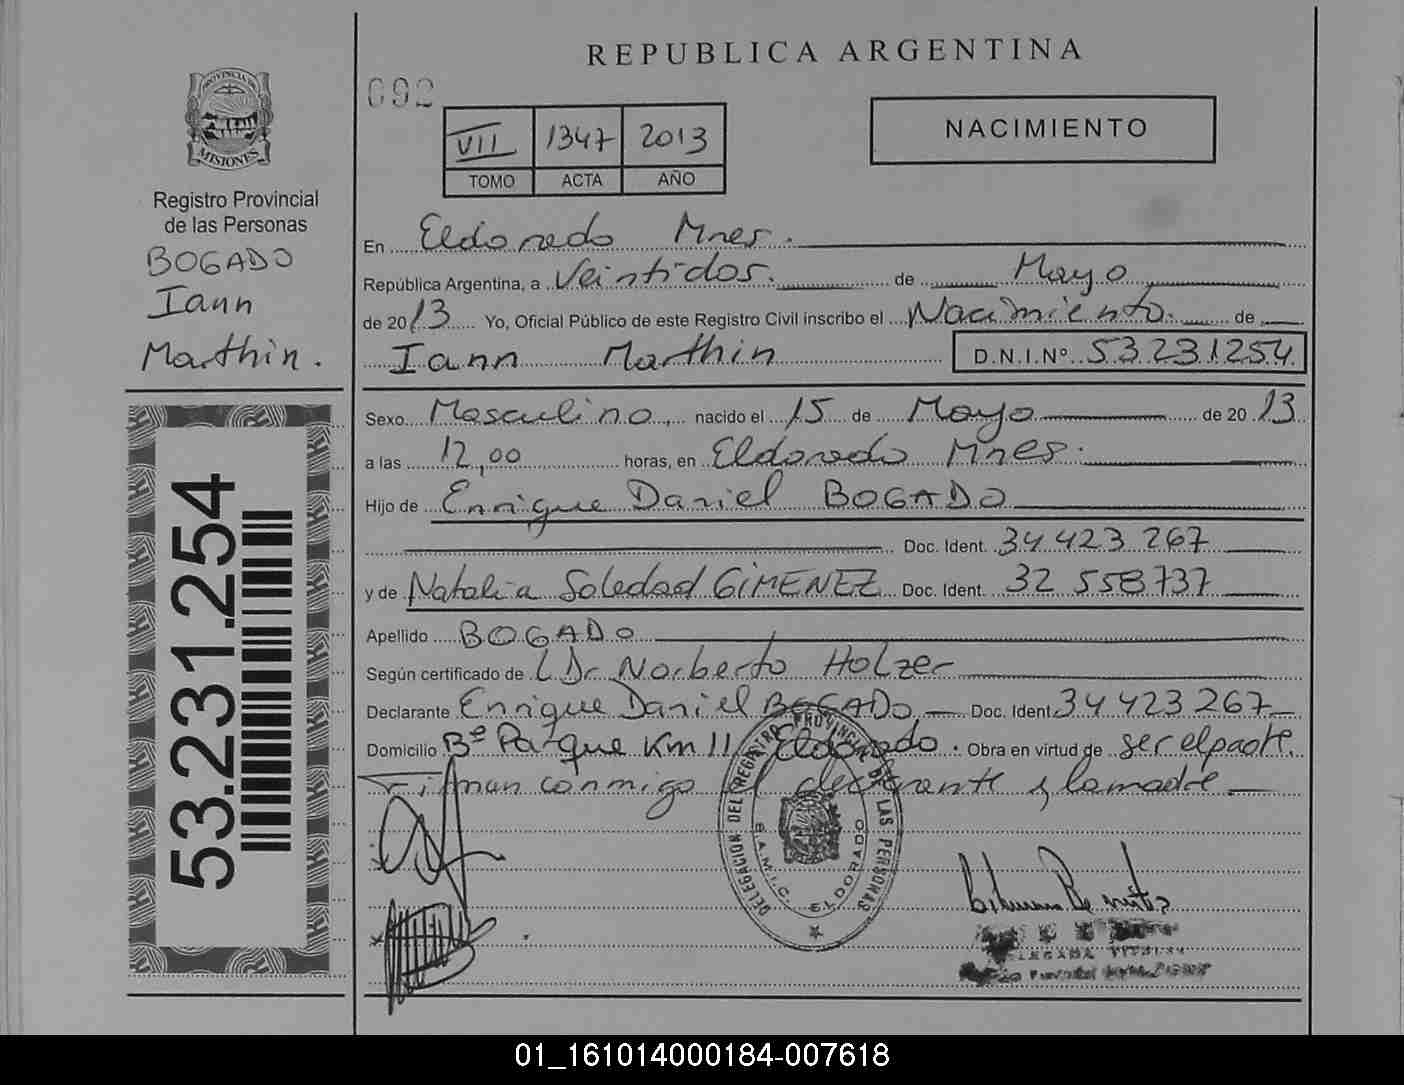 REPUBLICA ARGENTINA
PROVINCIA DE
MISIONES
Registro Provincial
de las Personas
BOGADO
Iann
Marthin.
53.231.254
092
VII 1347 2013
TOMO ACTA AÑO
NACIMIENTO
En Eldorado Mnes.
República Argentina, a Veintidos. de Mayo
de 2013 Yo, Oficial Público de este Registro Civil inscribo el Nacimiento. de
Iann Marthin D.N.I.Nº 53.231.254.
Sexo Masculino, nacido el 15 de Mayo de 2013
a las 12,00 horas, en Eldorado Mnes.
Hijo de Enrique Daniel BOGADO
Doc. Ident. 34 423 267
y de Natalia Soledad GIMENEZ Doc. Ident. 32 558 737
Apellido BOGADO
Según certificado de Dr Norberto Holzer
Declarante Enrique Daniel BOGADO, Doc. Ident 34 423 267
Domicilio Bº Parque Km 11 Eldorado. Obra en virtud de ser el padre.
Firman conmigo el declarante y la madre
DELEGACION DEL REGISTRO PROVINCIAL DE LAS PERSONAS
S.A.M.I.C. ELDORADO
01_161014000184-007618